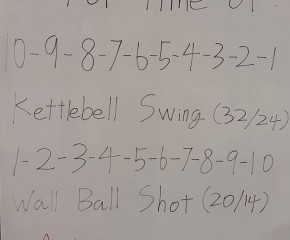 For Time of:
10-9-8-7-6-5-4-3-2-1
Kettlebell Swing (32/24)
1-2-3-4-5-6-7-8-9-10
Wall Ball Shot (20/14)